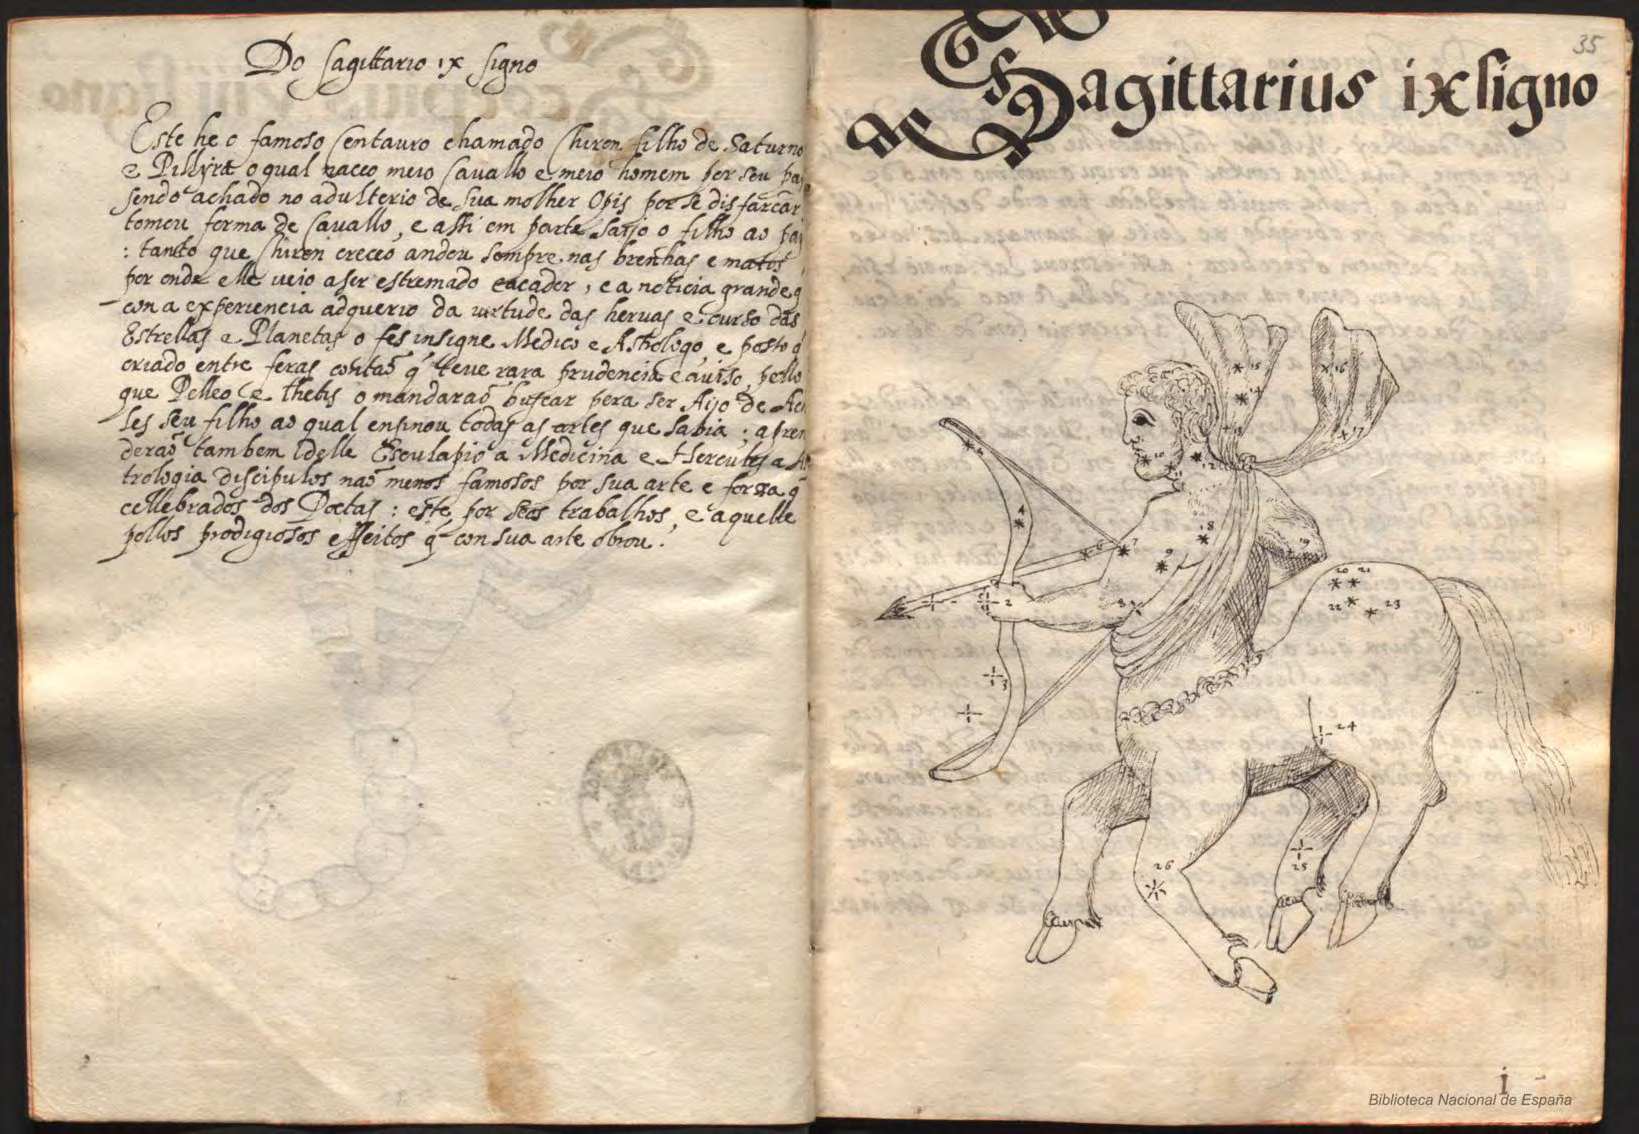 Do Sagittario ix signo
Este he o famoso Sentauro chamado Chiron filho de Saturno
e Phillyra o qual naceo meio Cavallo e meio homem por seu pay
sendo achado no adulterio de sua molher Opis por se disfarcar
tomou forma de Cavallo, e assi em parte saijo o filho ao pay
: tanto que Chiron creceo andou sempre nas brenhas e matos
por onde elle veio a ser estremado cacador, e a noticia grande q
con a experiencia adquerio da virtude das hervas e curso das
Estrellas e Planetas o fes insigne Medico e Astrologo, e posto q
criado entre feras contaõ q̃ teve rara prudencia e aviso, pello
que Pelleo e thetis o mandaraõ buscar pera ser Aijo de Achi
les seu filho ao qual ensinou todas as artes que sabia ; apren
deraõ tambem delle Esculapio a Medicina e Hercules a As
trologia discipulos naõ menos famosos por sua arte e forza q̃
cellebrados dos Poetas : este por seos trabalhos, e aquelle
pollos prodigiosos effeitos q̃ con sua arte obrou.
35
De
Sagittarius ix signo
15
16
14
17
13
10
12
5
4
18
7
6
9
19
20 21
22
23
8
2
3
24
25
26
i
Biblioteca Nacional de España